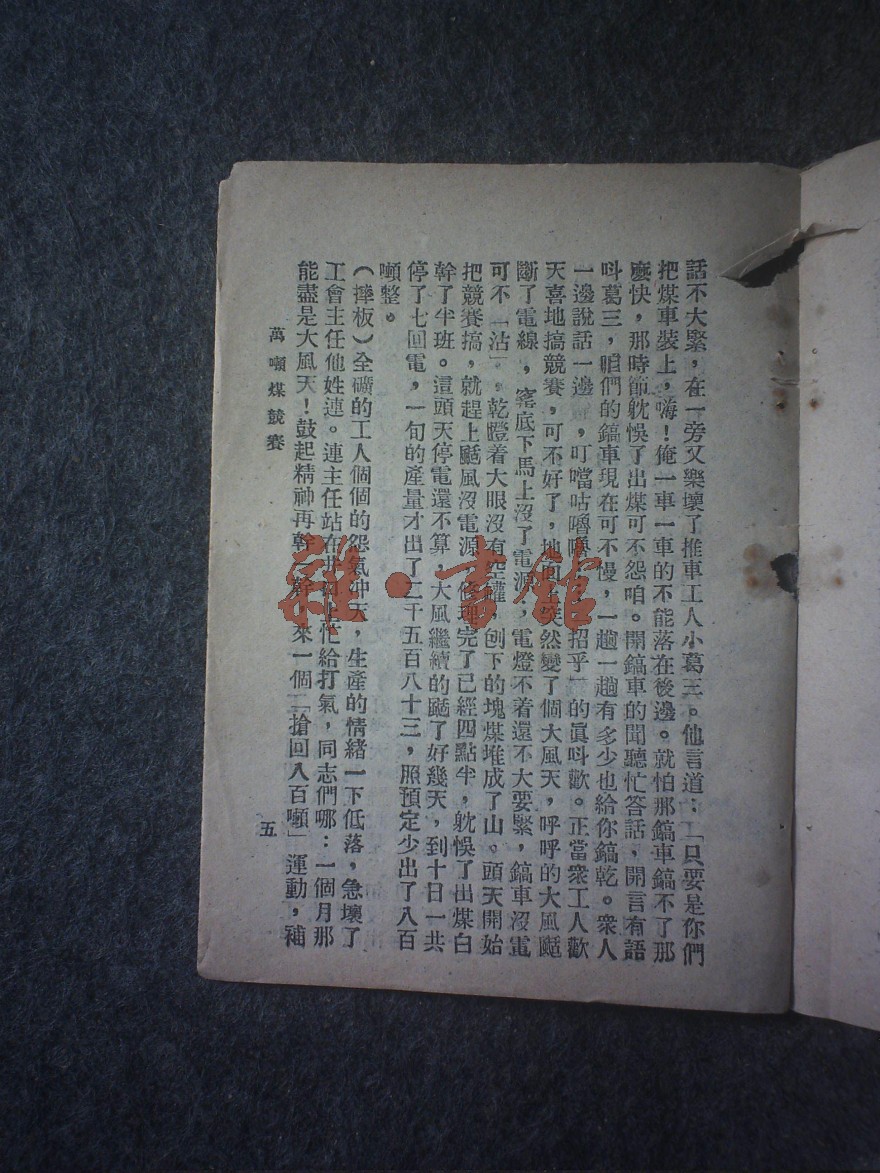 話不大緊，在一旁又樂壞了推車工人小葛三。他言道：「只要是你們
把煤車裝上，嗨！俺一車一車的不能落在後邊。就怕那鎬車鎬不了那
麽快，那時節躭悞了出煤可不怨咱。開鎬車的聞聽忙答話，開言有語
呌葛三，咱們的鎬車現在可不慢，一趟一趟有多少也給你鎬乾。衆人
一邊說話一邊，叮噹咕嚕嚕 招乎 的眞呌歡。正當衆工人歡
天喜地搞競賽，可不好了，地面上突然變了個大風天，呼呼的大風颳
斷了電線，窰底下馬上沒了電源；電燈不着還不大要緊，鎬車沒電
可不「沽」，乾瞪着大眼沒有空罐，刨下的塊煤堆成了山。頭天開始
把競賽搞，就趕上颳風沒電源，修理完了已經四點半，躭悞了出煤白
幹了半班。這頭天停電還不算，大風繼續的颳了好幾天，到十日一共
停了七回電，一旬的產量才出了二千五百八十三，照預定少出了八百
噸整。
（摔板）全礦的工人個個的怨氣冲天，生產的情緒一下低落，急壞了
工會主任他姓連。連主任站在井口上忙給打氣，同志們哪：一個月那
能盡是大風天！鼓起精神再幹一幹，來一個「搶回八百噸」運動，補
萬噸煤競賽
五
雜·書館